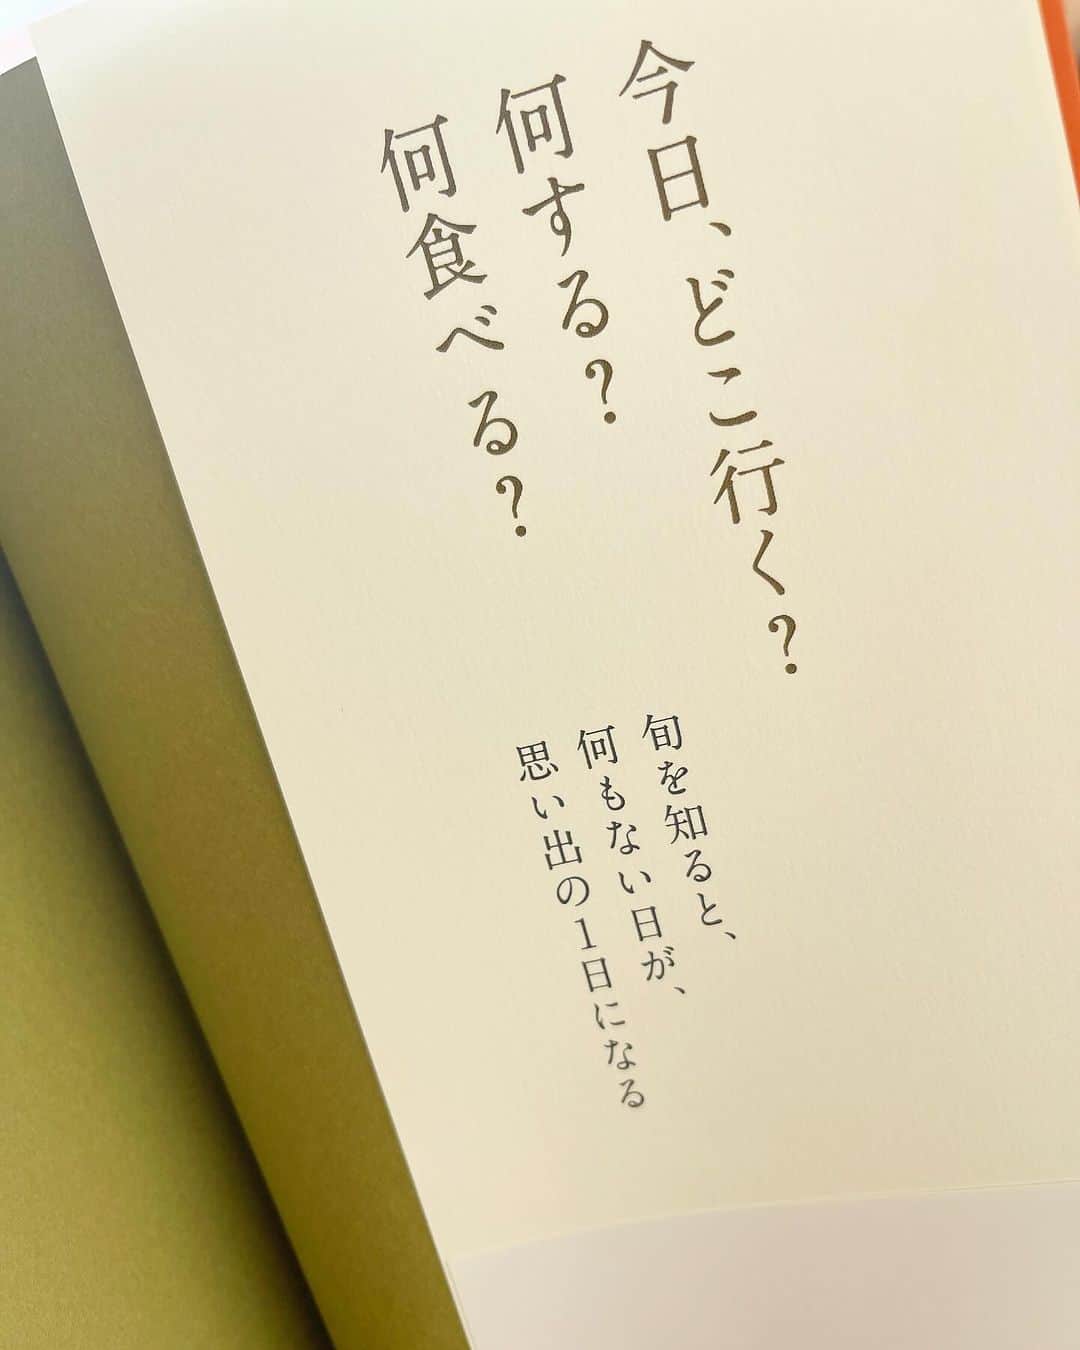 今日、どこ行く？
何する？
何食べる？
旬を知ると、
何もない日が、
思い出の1日になる